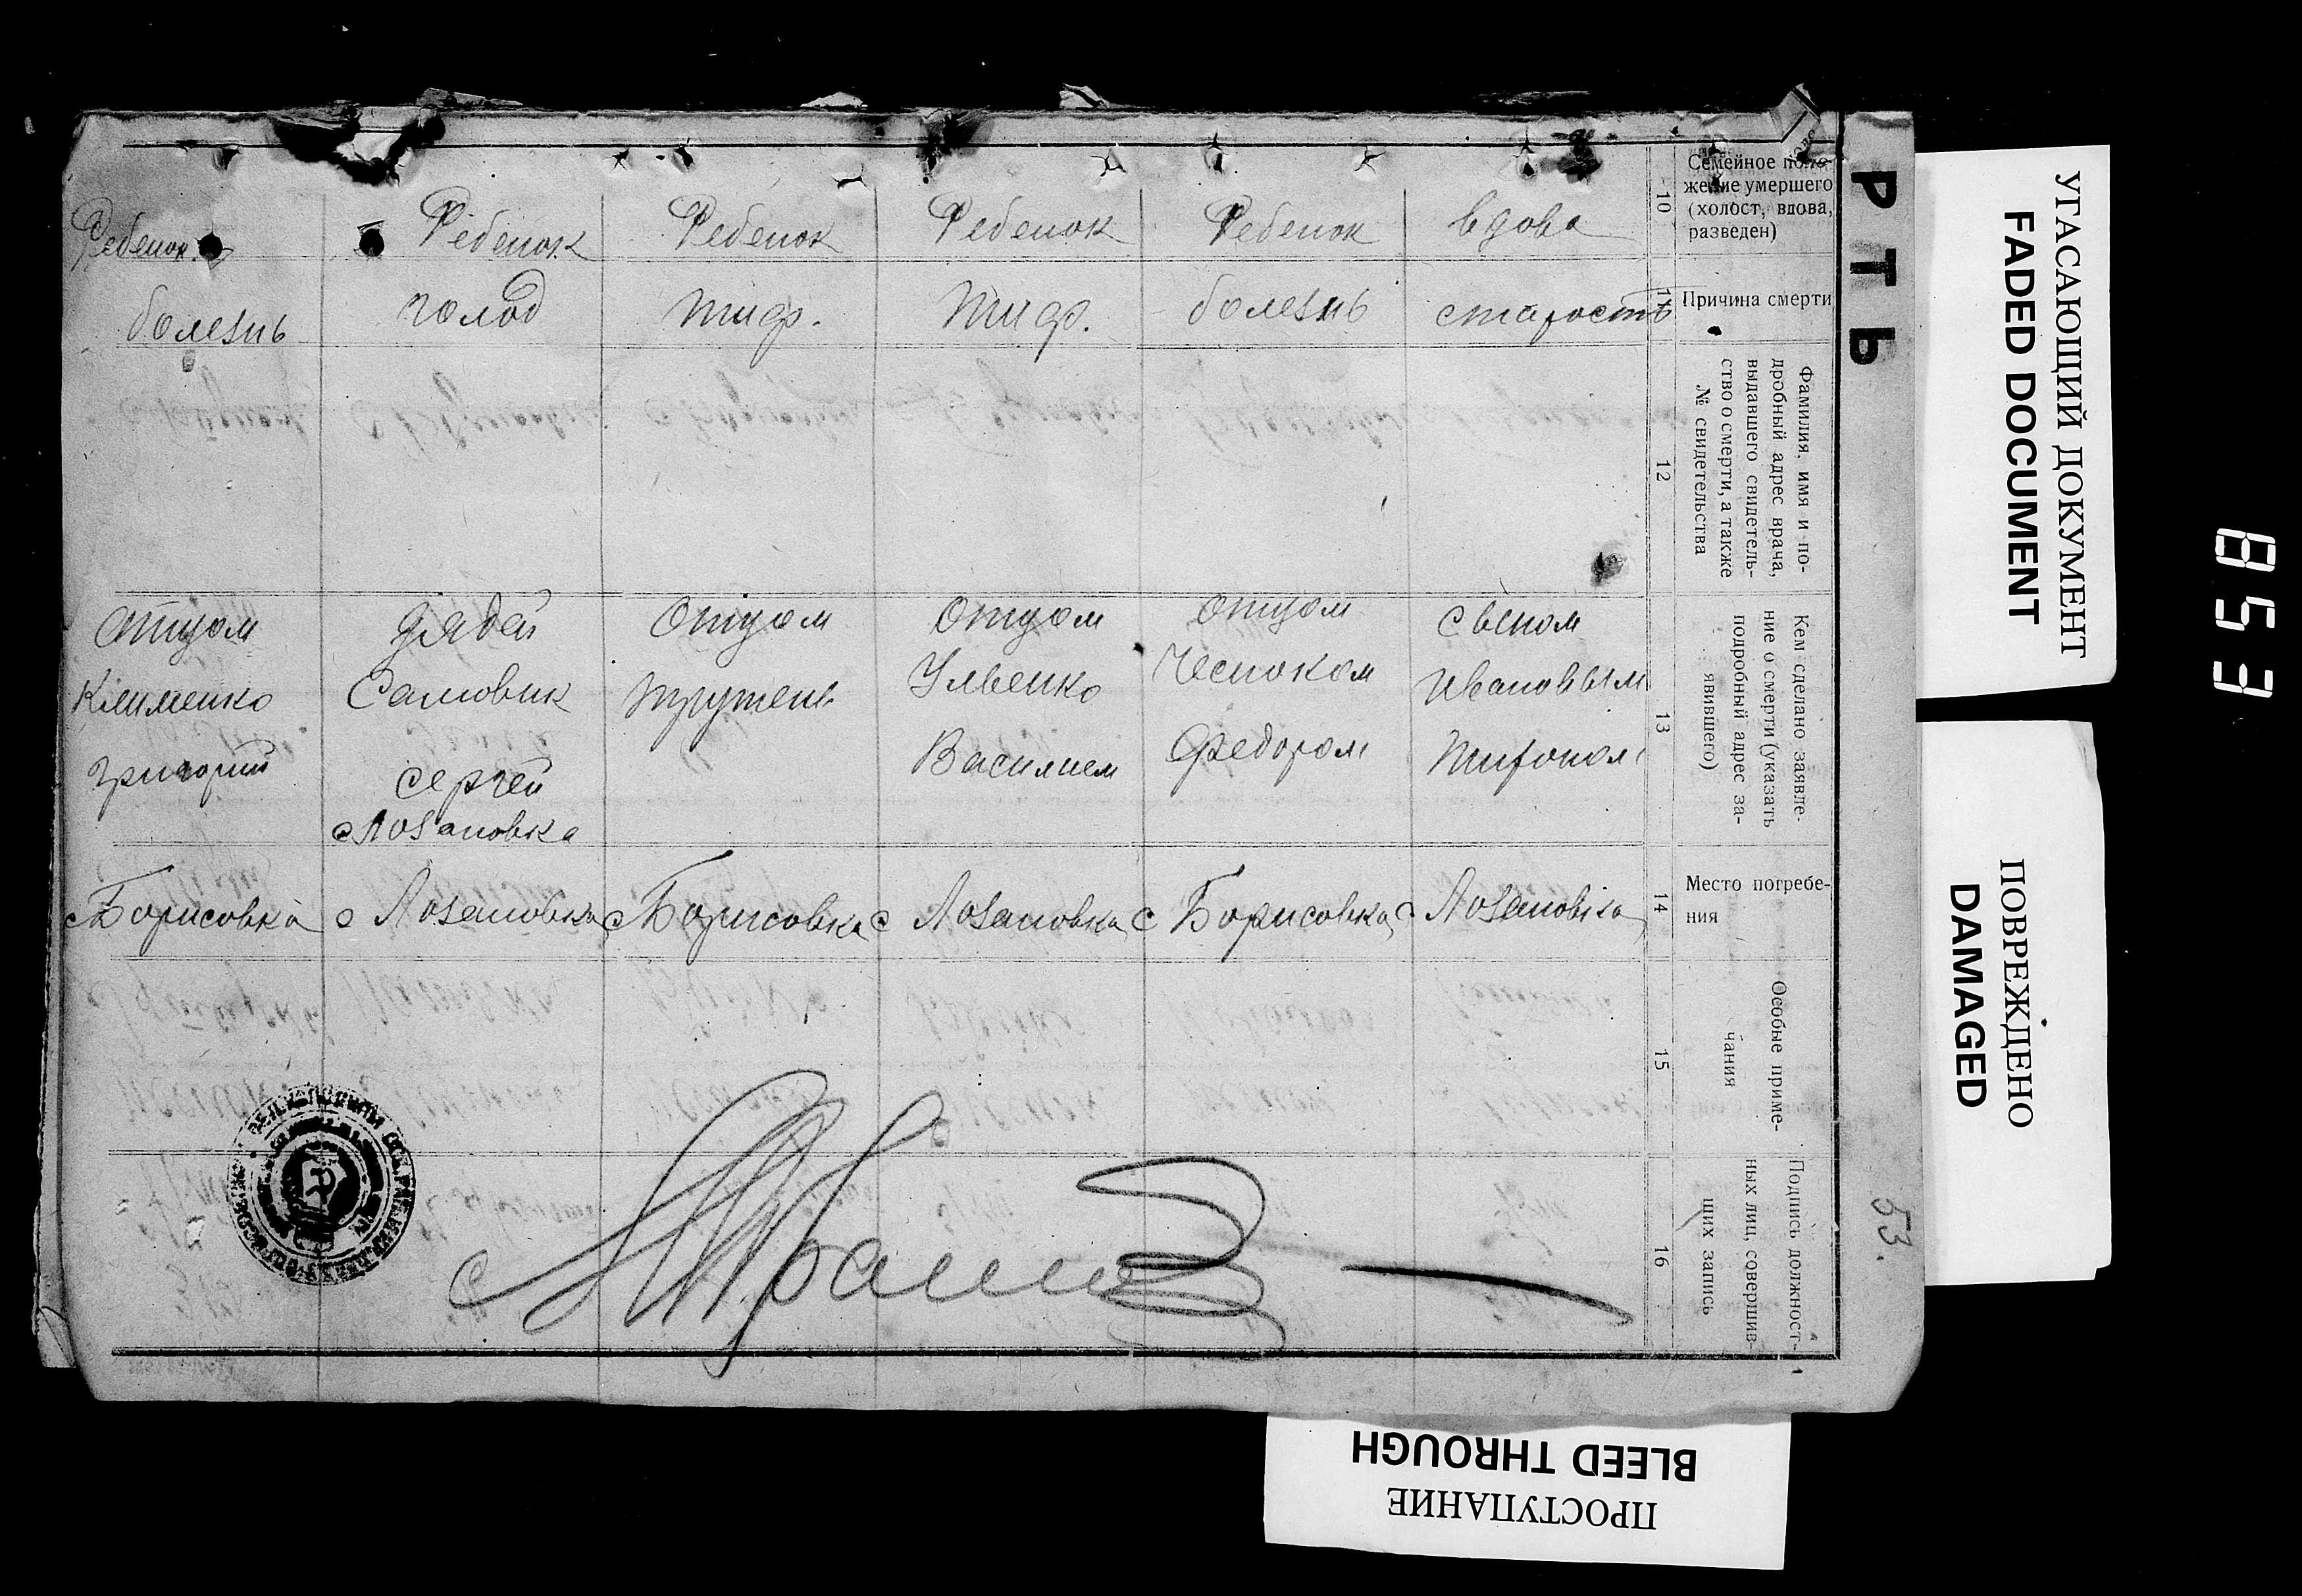 РТЬ
Семейное поло-
жение умершего
(холост, вдова,
разведен)
10
Ребенок
Ребенок
Ребенок
Ребенок
Ребенок
вдова
Причина смерти
11
болезнь
голод
тиф.
тиф.
болезнь
старость
Фамилия, имя и по-
дробный адрес врача,
выдавшего свидетель-
ство о смерти, а также
№ свидетельства
12
Кем сделано заявле-
ние о смерти (указать
подробный адрес за-
явившего)
13
отцом
Клименко
григорий
дядей
Саловик
сергей
с Лозановка
отцом
трутень
отцом
Ульенко
Василием
отцом
Чесноком
Федором
сыном
Ивановым
Тифоном
Место погребе-
ния
14
с Борисовка
с Лозановка
с Борисовка
с Лозановка
с Борисовка
с Лозановка
Особые приме-
чания
15
Подпись должност-
ных лиц, совершив-
ших запись
16
53.
УГАСАЮЩИЙ ДОКУМЕНТ
FADED DOCUMENT
ПОВРЕЖДЕНО
DAMAGED
ПРОСТУПАНИЕ
BLEED THROUGH
853